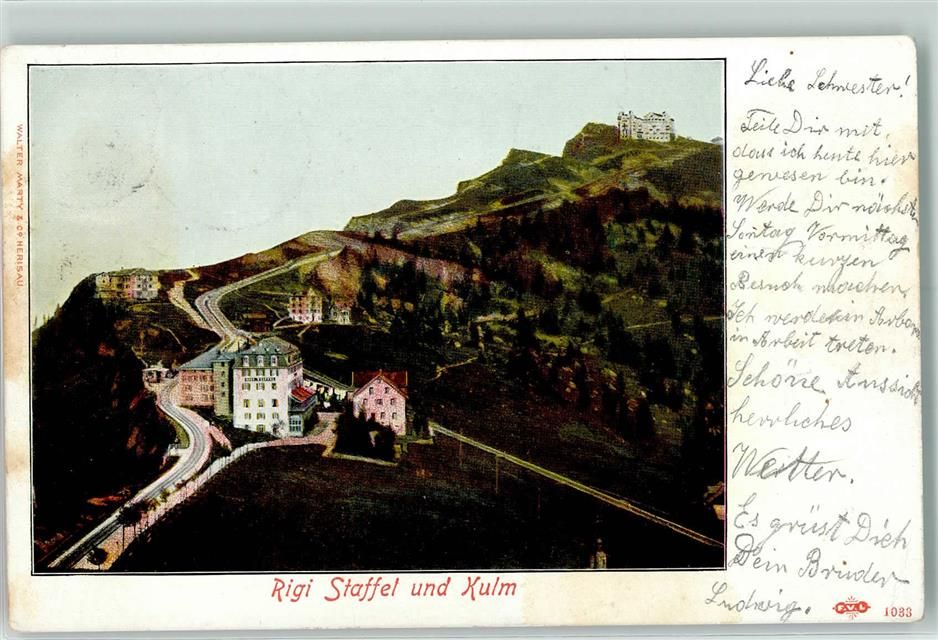 WALTER MARTY & Cº HERISAU
Liebe Schwester!
Teile Dir mit,
dass ich heute hier
gewesen bin.
Werde Dir nächsten
Sontag Vormittag
einen kurzen
Besuch machen.
Ich werde in Arbon
in Arbeit treten.
Schöne Aussicht
herrliches
Wetter.
Es grüst Dich
Dein Bruder
Ludwig.
Rigi Staffel und Kulm
F.V.L
1033